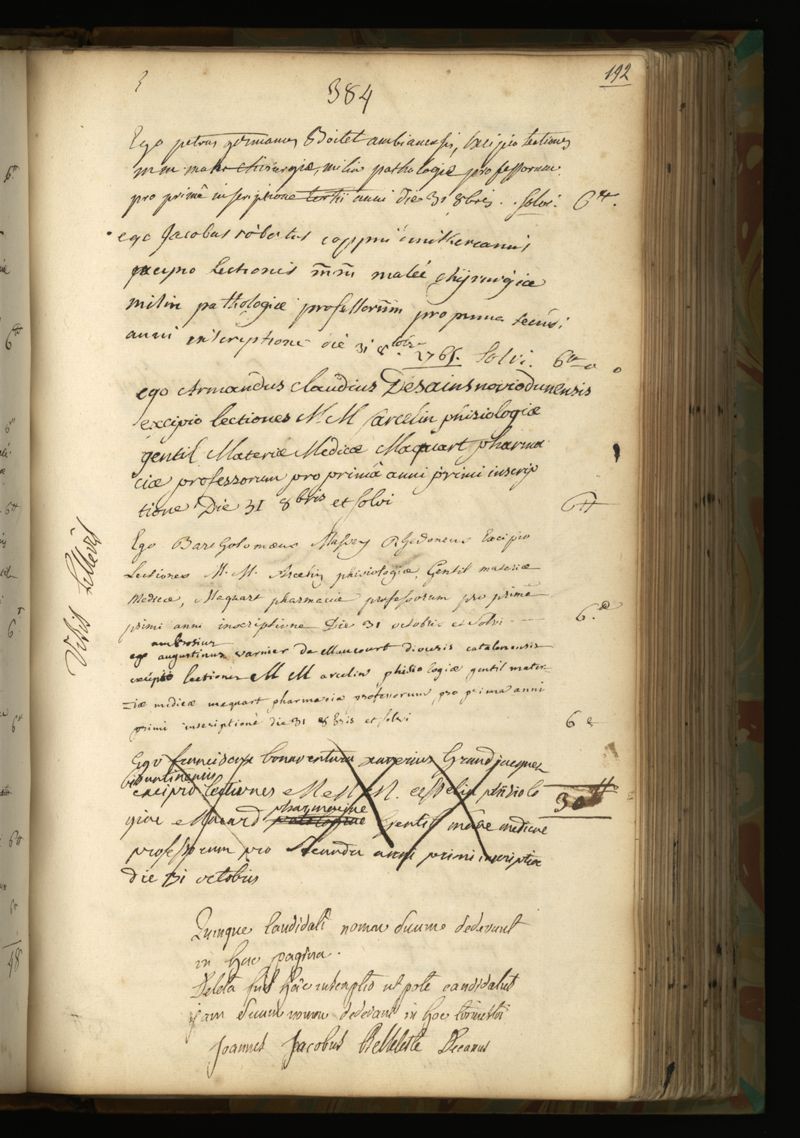 192
384
Ego petrus germanus Boitet ambianensis, excipio lectiones
mm chirurgiæ, milin pathologiæ professorum
pro primâ inscriptione tertii anni die 31 8bris. solvi. 6tt.
ego Jacobus robertus
excipio lectionis m̄m̄ chyrurgiæ
milin pathologiæ professorum pro prima
anni inscriptione die 31 8bris 1765. solvi. 6tt
ego Armandus claudius Desains noviodunensis
excipio lectiones M. M arcelin phisiologiæ
gentil Materiæ Medicæ Maquart pharma
ciæ professorum pro primâ anni primi inscrip
tione Die 31 8bris et solvi 6tt
Ego Bartholomæus Rhedoneus Excipio
Lectiones M. M. Arcelin phisiologiæ, Gentil materiæ
Medicæ, Maquart pharmaciæ professorum pro primâ
primi anni inscriptione Die 31 octobris et solvi 6
ambrosius
ego augustinus varnier de Maucourt diocesis catalonensis
excipio lectiones M M arcelin phisiologiæ gentil mater-
iæ medicæ maquart pharmacia professorum pro prima anni
primi inscriptione die 31 8bris et solvi 6
Ego franciscus bonaventura xaverius Grandjacquez
bisuntinensis
excipio lectiones phisiolo
giæ gentil medicæ
professorum pro secunda anni primi inscriptio
die 31 octobris
30tt
Visis Litteris
Quinque Candidati nomen suum dederunt
in hac pagina.
Deleta fuit hæc utpote candidatus
jam suum nomen dederant in hoc
Joannes Jacobus Belleteste Decanus